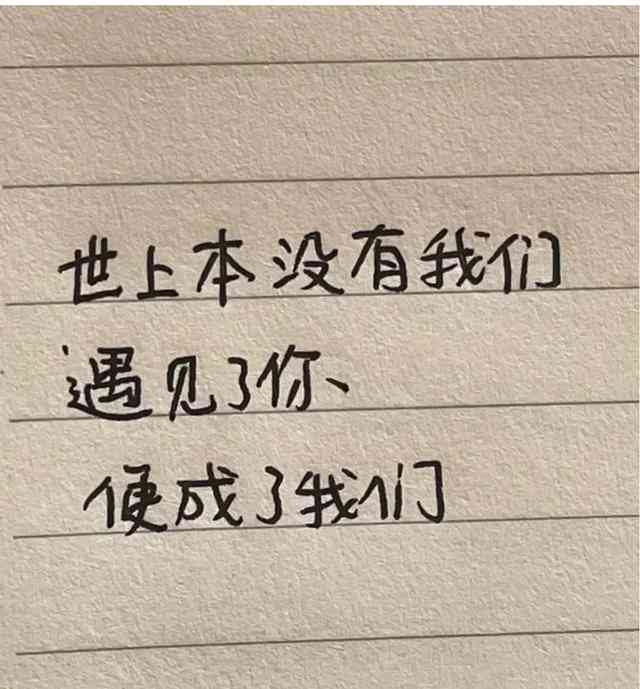 世上本没有我们
遇见了你、
便成了我们